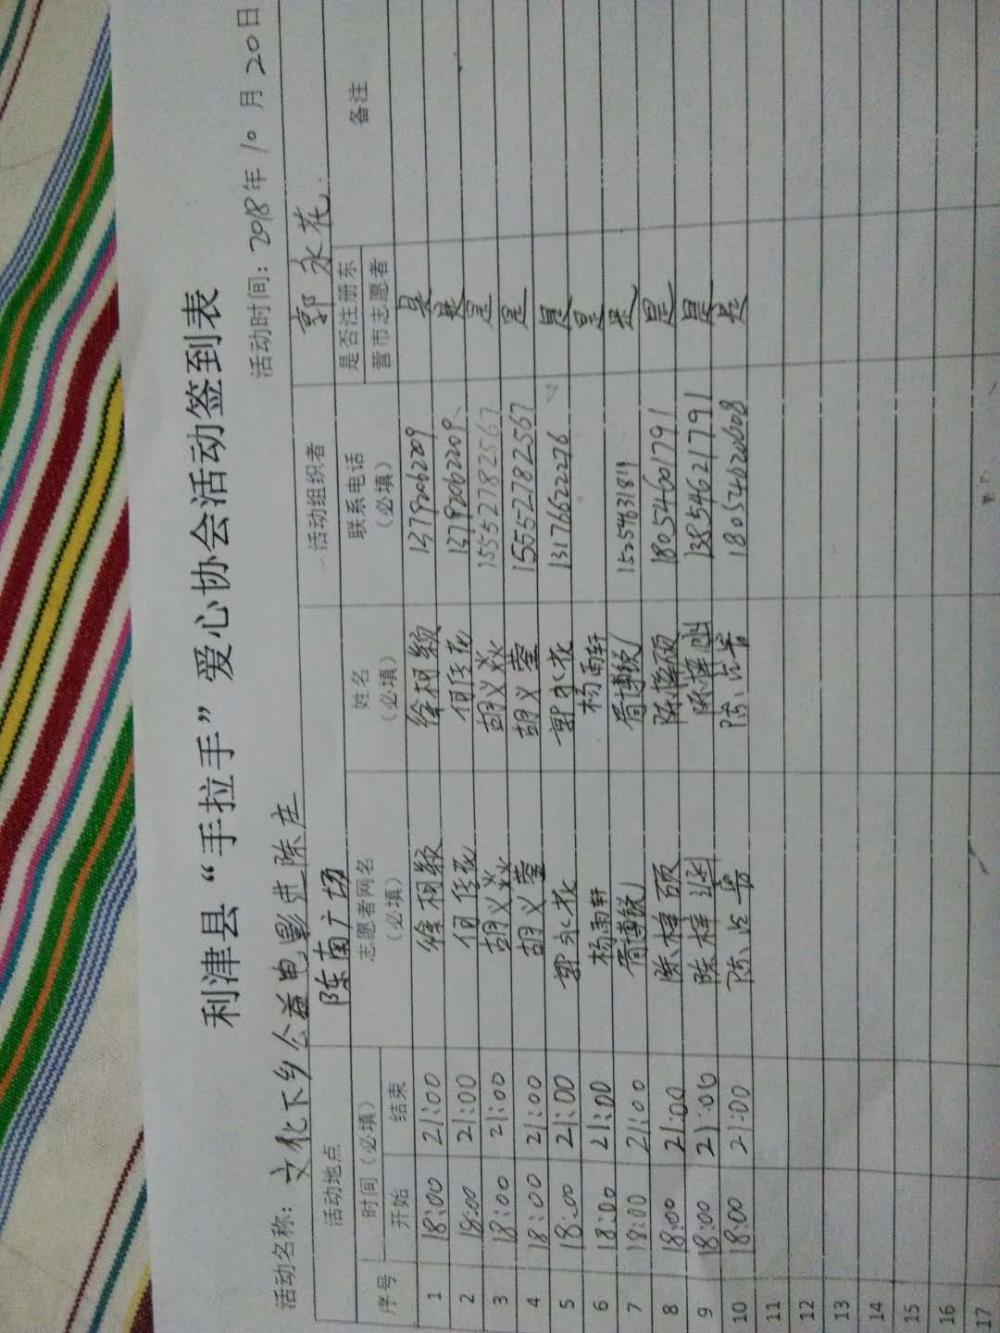 利津县“手拉手”爱心协会活动签到表
活动名称：文化下乡公益电影进陈庄 活动时间：2018年10月20日
活动地点 陈南广场 活动组织者 郭永花
序号 时间（必填） 志愿者网名（必填） 姓名（必填） 联系电话（必填） 是否注册东营市志愿者 备注
开始 结束
1 18:00 21:00 徐桐颖 徐桐颖 13792062209 是
2 18:00 21:00 何佳花 何佳花 13792062209 是
3 18:00 21:00 胡义焱 胡义焱 15552782567 是
4 18:00 21:00 胡义莹 胡义莹 15552782567 是
5 18:00 21:00 郭永花 郭永花 13176622276 是
6 18:00 21:00 杨雨轩 杨雨轩 是
7 18:00 21:00 是
8 18:00 21:00 陈梓硕 陈梓硕 18054601791 是
9 18:00 21:00 陈梓 陈梓 13854621791 是
10 18:00 21:00 18054620608 是
11
12
13
14
15
16
17